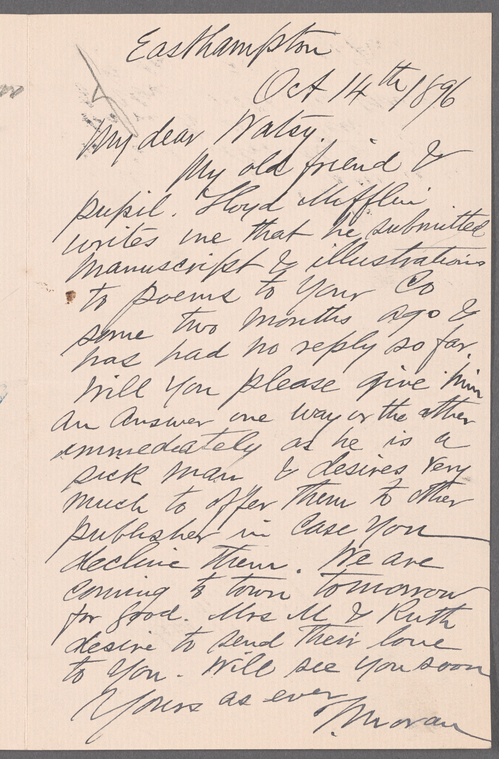 Easthampton
Oct 14th/1896
My dear Watsy.
My old friend &
pupil. Lloyd Mifflin
writes me that he submitted
manuscript & illustrations
to poems to your Co
some two months ago &
has had no reply so far.
Will you please give him
an answer one way or the other
immediately as he is a
sick man, & desires very
much to offer them to other
publisher in case you
decline them. We are
coming to town tomorrow
for good. Mrs M & Ruth
desire to send their love
to you. Will see you soon
Yours as ever
T. Moran